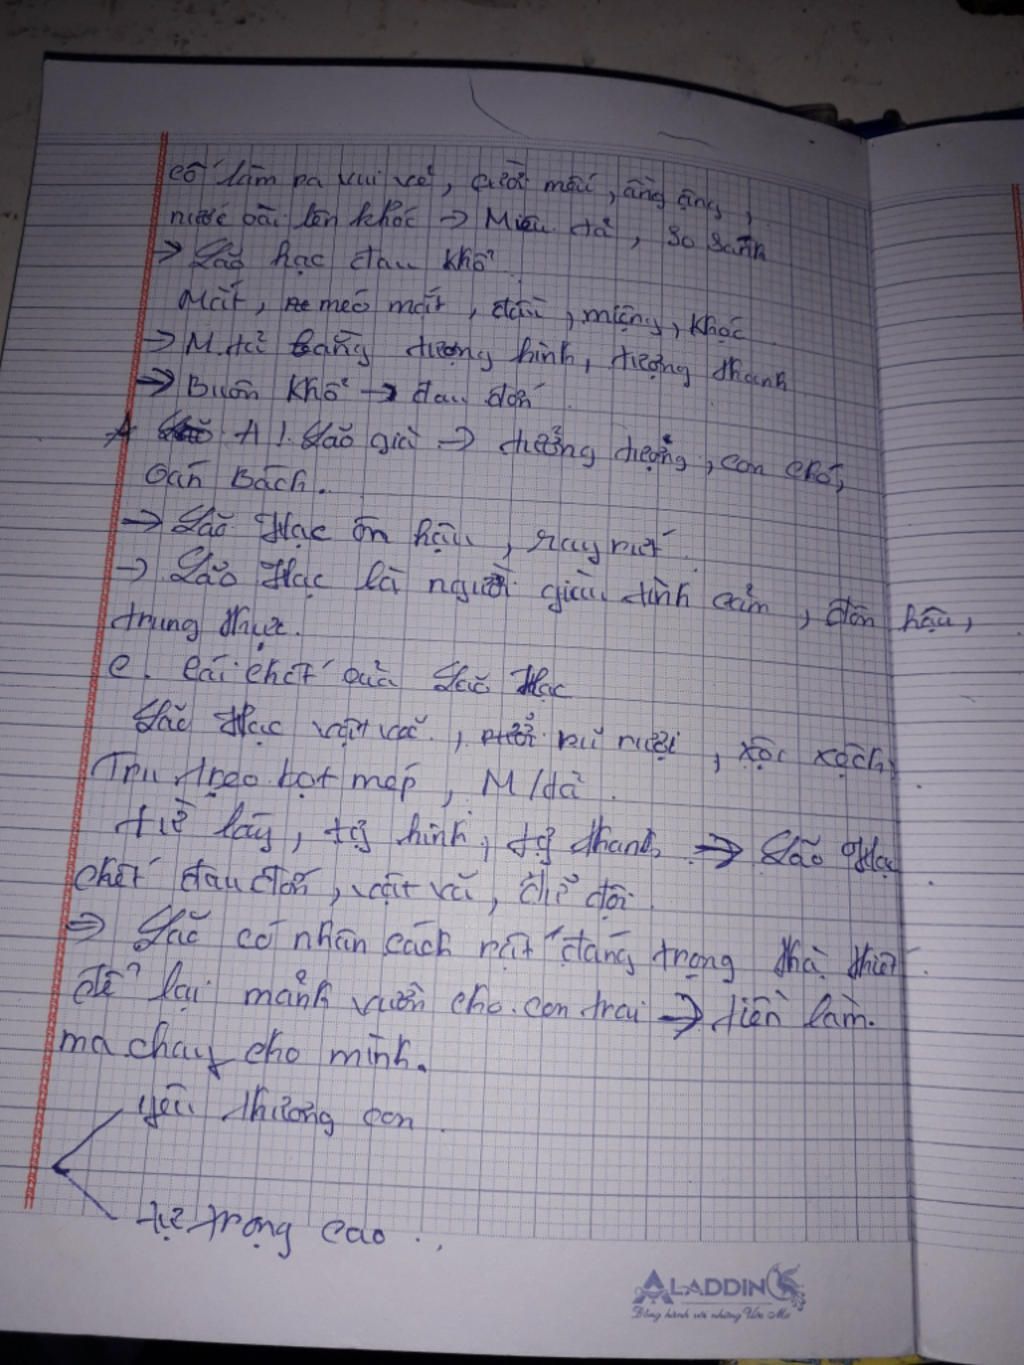 cố làm ra vui vẻ, cười mếu, ầng ậng,
nước oài lên khóc → Miêu tả, so sánh
→ Lão hạc đau khổ
Mặt, méo mặt, đầu, miệng, khọc
→ M.tả bằng tượng hình, tượng thanh
→ Buồn khổ → đau đớn.
A! Lão già → tưởng tượng, con chó,
oán Bách.
→ Lão Hạc ôn hậu, ray rứt.
→ Lão Hạc là người giàu tình cảm, đôn hậu,
trung thực.
c. Cái chết của Lão Hạc
Lão Hạc vật vã, rũ rượi, xộc xệch
Tru tréo bọt mép, M/tả.
từ láy, tg hình, tg thanh ⇒ Lão Hạc
chết đau đớn, vật vã, dữ dội.
⇒ Lão có nhân cách rất đáng trọng thà
để lại mảnh vườn cho con trai → tiền làm
ma chay cho mình.
yêu thương con.
tự trọng cao..
ALADDIN
Đồng hành với những Ước Mơ